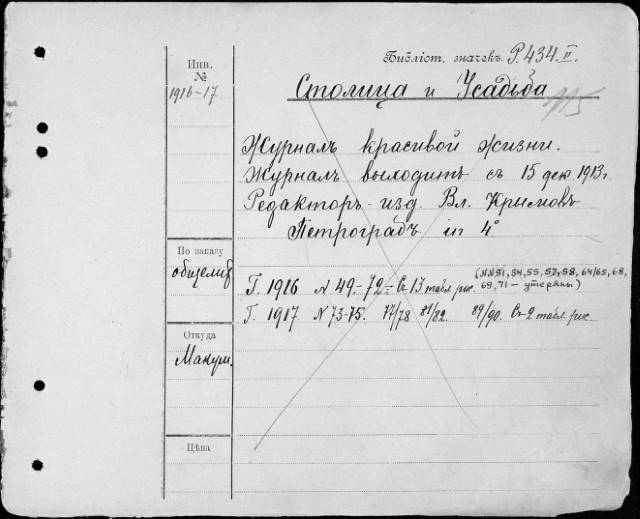 Библіот. значекъ Р. 434 II.
Инв.
№
1916-17
Столица и Усадьба
Журналъ красивой жизни.
Журналъ выходитъ съ 15 дек 1913 г.
Редакторъ-изд. Вл. Крымовъ
Петроградъ in 4°
По заказу
Г. 1916 N 49-72 = Съ 13 табл. рис. (NN 51, 54, 55, 57, 58, 64/65, 68,
69, 71 - утеряны)
Г. 1917 N 73-75. 77/78 81/82. 89/90. Съ 2 табл. рис.
Откуда
Макуш.
Цѣна